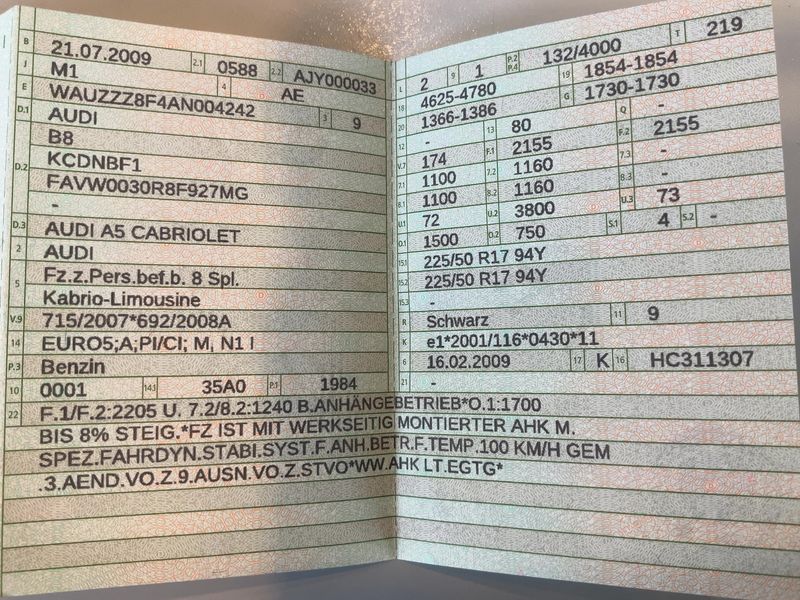 B 21.07.2009 2.1 0588 2.2 AJY000033
J M1 4 AE
E WAUZZZ8F4AN004242 3 9
D.1 AUDI
B8
D.2 KCDNBF1
FAVW0030R8F927MG
-
D.3 AUDI A5 CABRIOLET
2 AUDI
5 Fz.z.Pers.bef.b. 8 Spl.
Kabrio-Limousine
V.9 715/2007*692/2008A
14 EURO5;A;PI/CI; M, N1 I
P.3 Benzin
10 0001 14.1 35A0 P.1 1984
L 2 9 1 P.2 P.4 132/4000 T 219
18 4625-4780 19 1854-1854
20 1366-1386 G 1730-1730
12 - 13 80 Q -
V.7 174 F.1 2155 F.2 2155
7.1 1100 7.2 1160 7.3 -
8.1 1100 8.2 1160 8.3 -
U.1 72 U.2 3800 U.3 73
O.1 1500 O.2 750 S.1 4 S.2 -
15.1 225/50 R17 94Y
15.2 225/50 R17 94Y
15.3 -
R Schwarz 11 9
K e1*2001/116*0430*11
6 16.02.2009 17 K 16 HC311307
21 -
22 F.1/F.2:2205 U. 7.2/8.2:1240 B.ANHÄNGEBETRIEB*O.1:1700
BIS 8% STEIG.*FZ IST MIT WERKSEITIG MONTIERTER AHK M.
SPEZ.FAHRDYN.STABI.SYST.F.ANH.BETR.F.TEMP.100 KM/H GEM
.3.AEND.VO.Z.9.AUSN.VO.Z.STVO*WW.AHK LT.EGTG*